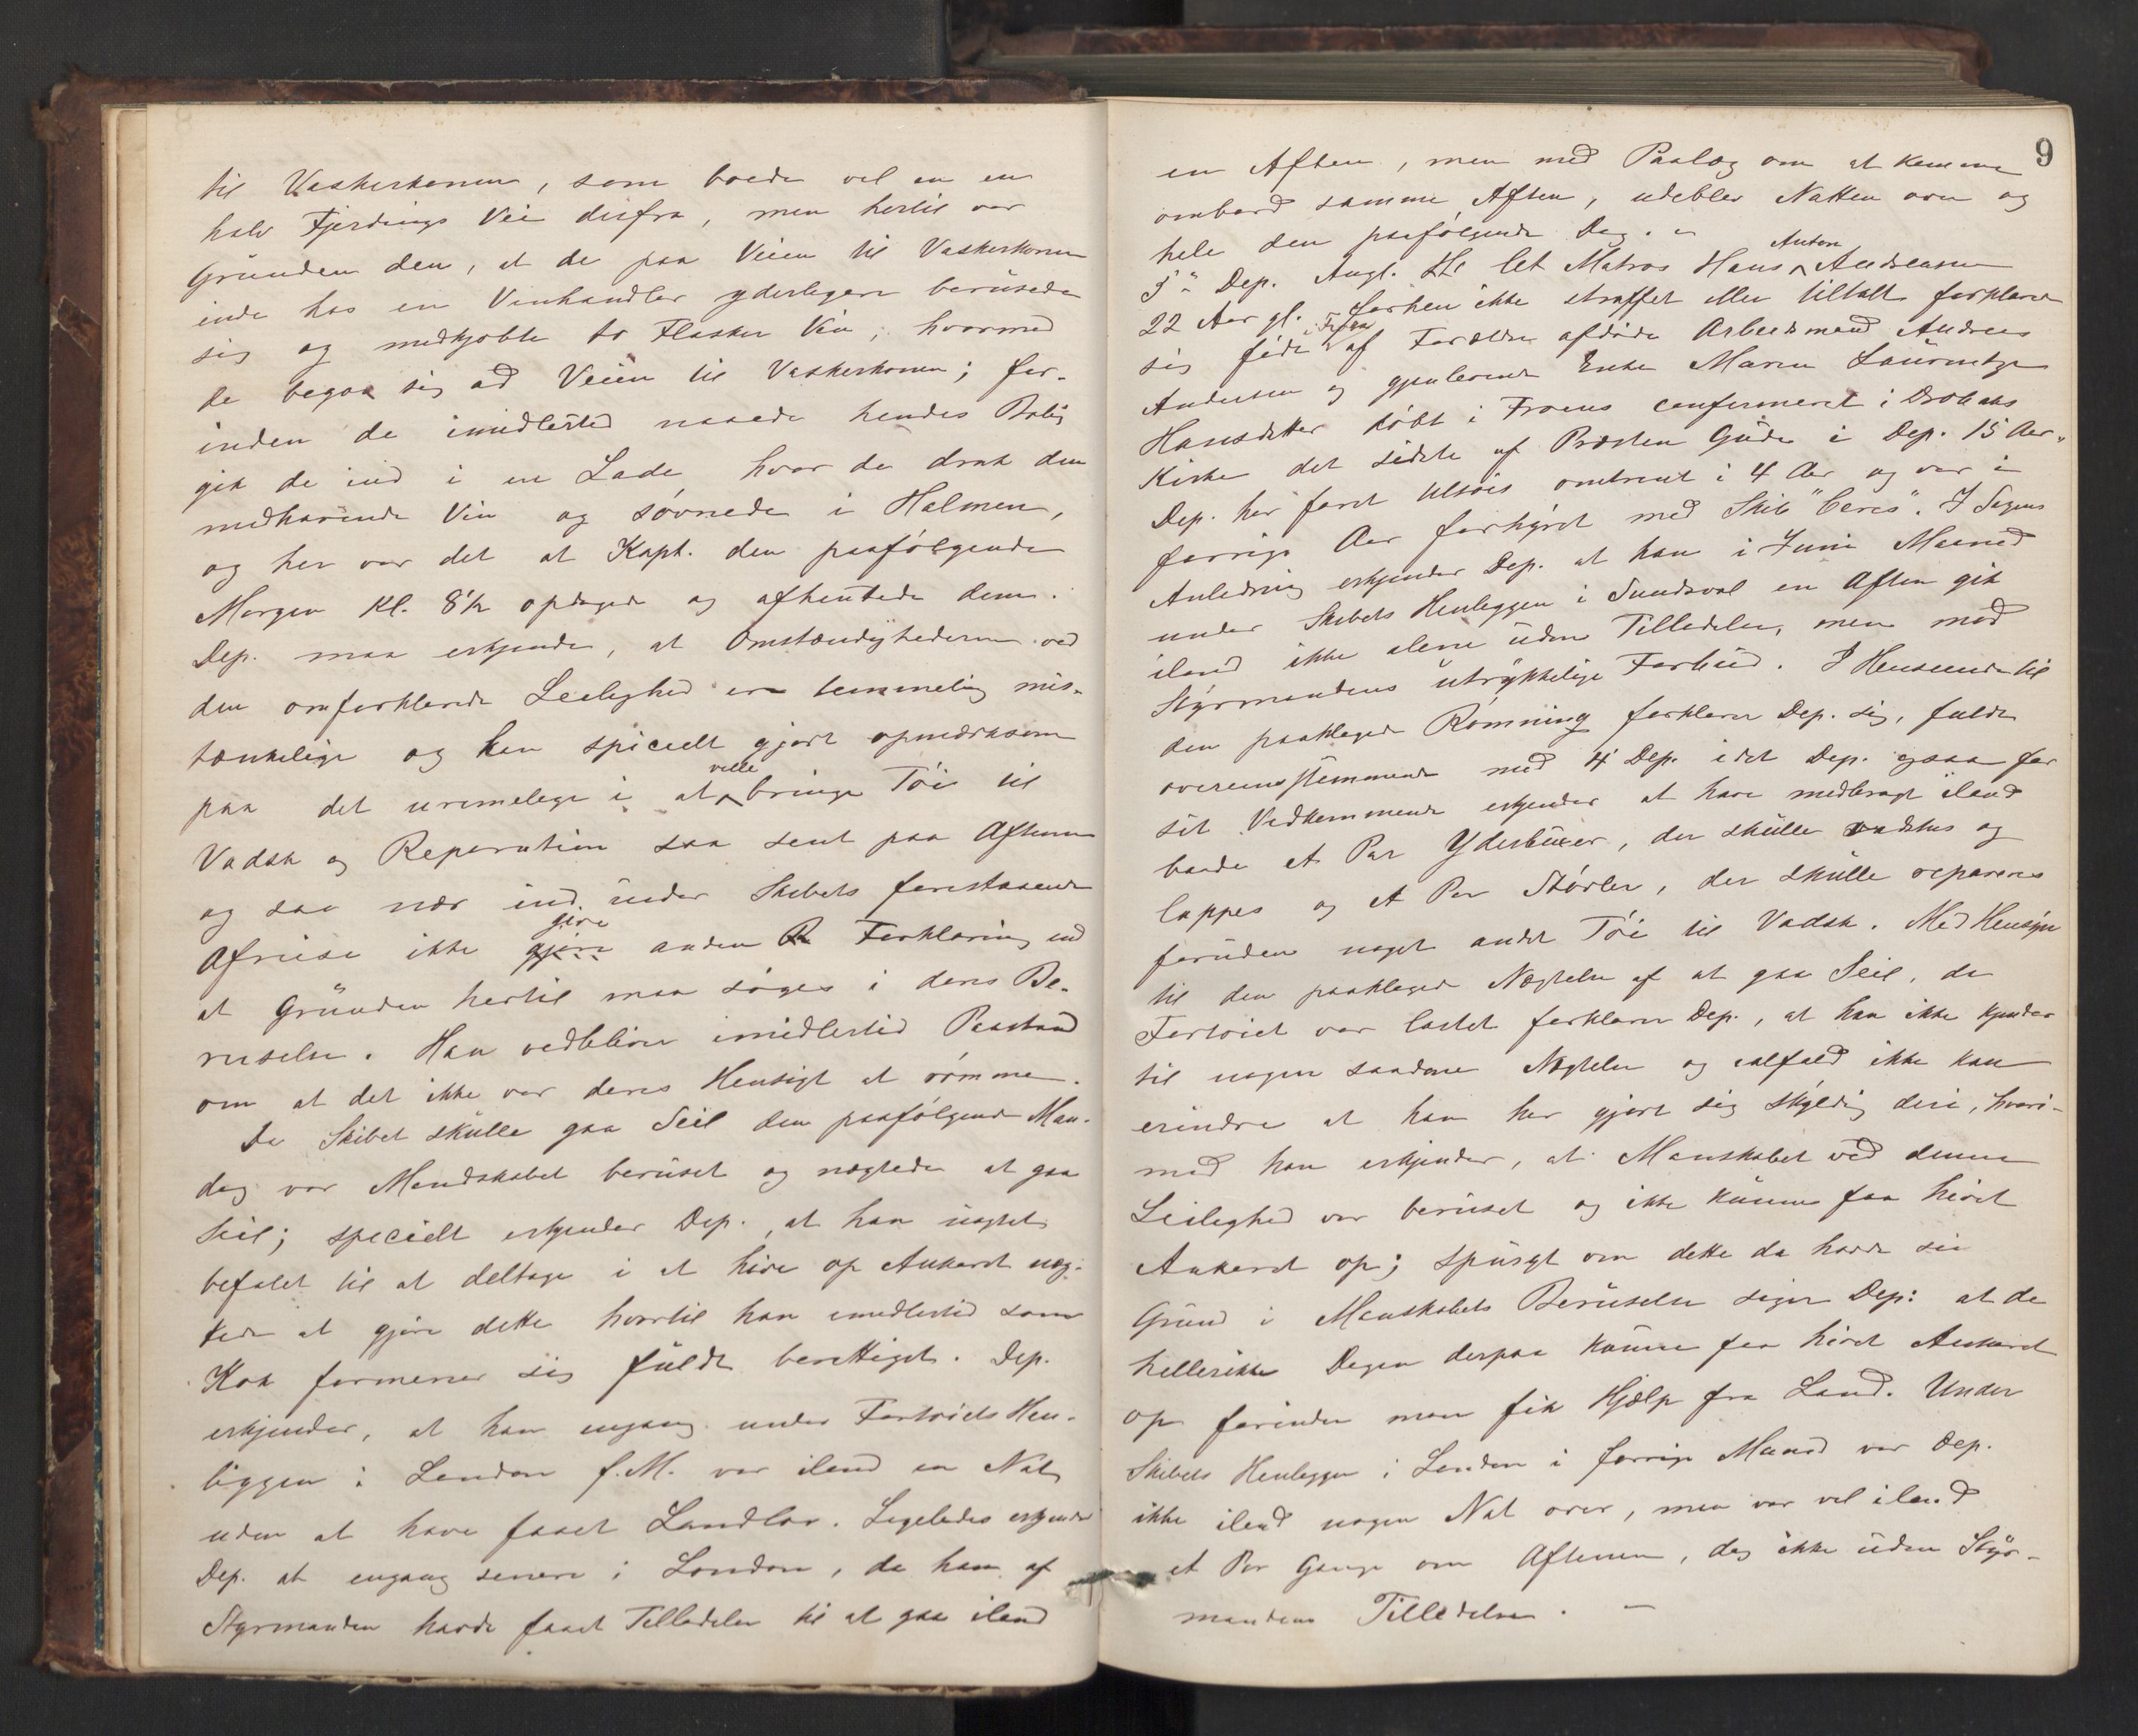 til Vaskerkonen, som boede vel en en
halv Fjerdings Vei derfra, men hertil var
Grunden den, at de paa Veien til Vaskerkonen
inde hos en Vinhandler yderligere berusede
sig og medkjøbte to Flasker Vin, hvormed
de begav sig ad Veien til Vaskerkonen; for-
inden de imidlertid naaede hendes Bolig
gik de ind i en Lade hvor de drak den
medhavende Vin og søvnede i Halmen,
og her var det at Kapt. den paafølgende
Morgen Kl. 8½ opdagede og afhentede dem.
Dep. maa erkjende, at Omstændighederne ved
den omforklarede Leilighed er temmelig mis-
tænkelige og kan specielt gjort opmærksom
paa det urimelige i at ville bringe Tøi til
Vadsk og Reperation saa sent paa Aftenen
og saa nær ind under Skibets forestaaende
Afreise ikke gjøre give anden Forklaring end
at Grunden hertil maa søges i deres Be-
ruselse. Han vedbliver imidlertid Paastand
om at det ikke var deres Hensigt at rømme.
Da Skibet skulle gaa Seil den paafølgende Man-
dag var Mandskabet beruset og nægtede at gaa
Seil; specielt erkjender Dep., at han uagtet
befalet til at deltage i at hive op Ankeret næg-
tede at gjøre dette hvortil han imidlertid som
Kok formener sig fuldt berettiget. Dep.
erkjender, at han engang under Fartøiets Hen-
liggen i London f.M. var iland en Nat
uden at have faaet Landlov. Ligeledes erkjender
Dep. at engang senere i London, da han af
Styrmanden havde faaet Tilladelse til at gaa iland
9
en Aften, men med Paalæg om at komme
ombord samme Aften, udeblev Natten over og
hele den paafølgende Dag. –
5te Dep. Angl. Let Matros Hans Anton Andreasen
22 Aar gl. forhen ikke straffet eller tiltalt forklarer
sig født i af Forældre afdøde Arbeidsmand Andreas
Andersen og gjenlevende Enke Maren
Hansdatter døbt i confirmeret i Drøbaks
Kirke det sidste af Præsten Gude i Dep. 15 Aar.
Dep. har faret tilsøis omtrent i 4 Aar og var i
forrige Aar forhyret med Skib "Ceres". I Sagens
Anledning erkjender Dep. at han i Juni Maaned
under Skibets Henliggen i Sundsval en Aften gik
iland ikke alene uden Tilladelse, men mod
Styrmandens udtrykkelige Forbud. I Henseende til
den paaklagede Rømning forklarer Dep. sig, fuldt
overensstemmende med 4 Dep. idet Dep. ogsaa for
sit Vedkommende erkjender at have medbragt iland
baade et Par Yderbuxer, der skulle vadskes og
lappes og et Par Støvler, der skulle repareres
foruden noget andet Tøi til Vadsk. Med Hensyn
til den paaklagede Nægtelse af at gaa Seil, da
Fartøiet var lastet forklarer Dep., at han ikke kjender
til nogen saadan Nægtelse og ialfald ikke kan
erindre at han har gjort sig skyldig deri, hvori-
mod han erkjender, at Manskabet ved denne
Leilighed var beruset og ikke kunne faa hivet
Ankeret op; spurgt om dette da havde sin
Grund i Manskabets Beruselse siger Dep: at de
hellerikke Dagen derpaa kunne faa hivet Ankeret
op forinden man fik Hjælp fra Land. Under
Skibets Henliggen i London i forrige Maaned var Dep.
ikke iland nogen Nat over, men var vel iland
et Par Gange om Aftenen, dog ikke uden Styr-
mandens Tilladelse. –